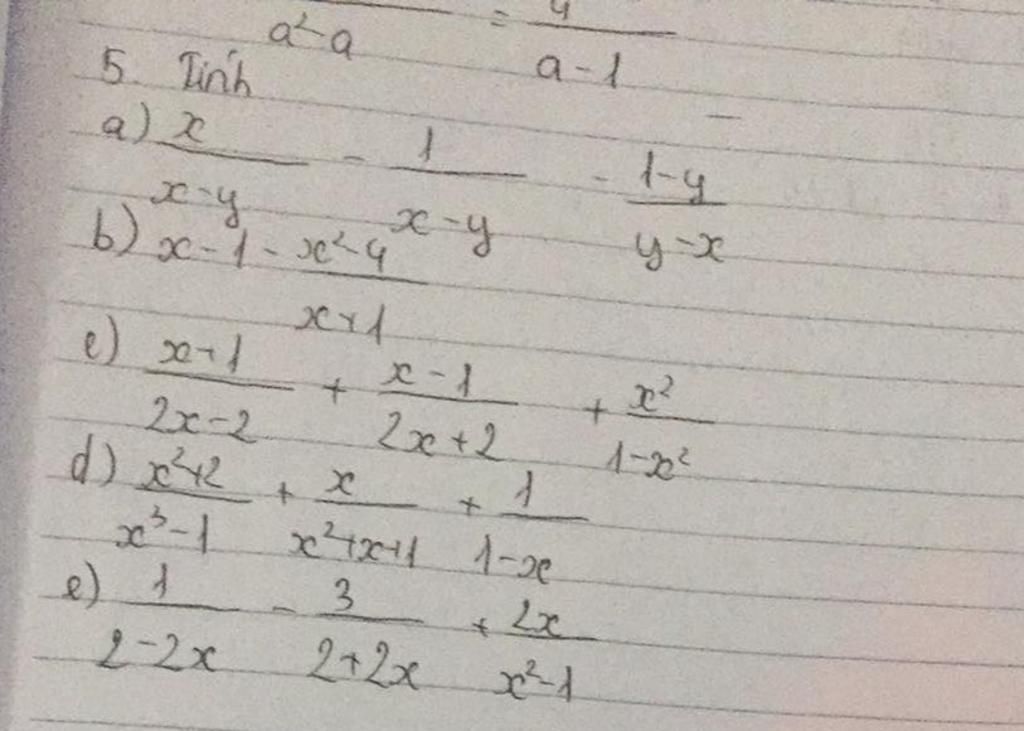 a²-a = 4/(a-1)
5. Tính
a) x/(x-y) - 1/(x-y) - (1-y)/(y-x)
b) x-1 - (x²-4)/(x+1)
c) (x+1)/(2x-2) + (x-1)/(2x+2) + x²/(1-x²)
d) (x²+2)/(x³-1) + x/(x²+x+1) + 1/(1-x)
e) 1/(2-2x) - 3/(2+2x) + 2x/(x²-1)